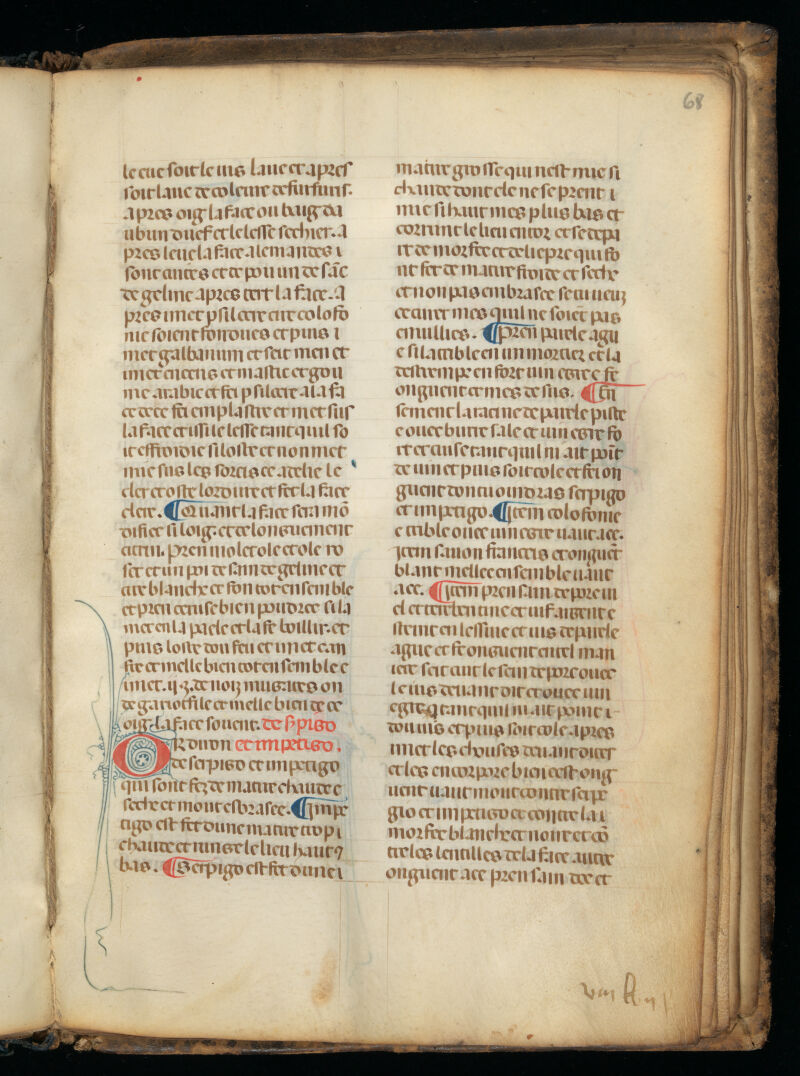 68
le eue soit le uis laue et apres
soit laue de coleure de furfuris.
apres oig la face ou baig da
ubun douef et le lesse sechier. a
pres leue la face alemandes i
sont cuites et de pou un de sāc
de geline apres tert la face. a
pres imet psilcere cire colofo
nie soient fondues et puis i
met galbanum et seit men et
imet encens et mastic et gou
me arabic et fei psilcere a la fa
ce de ce fei emplastre et met sus
la face et issi le lesse tant quil so
it effroidie si loste et non met
mie sus les sorcis ce atelie le
cler et oste lordure et fet la face
clere. ¶ Quant la face sera mō
difiee si loig. et de longuement
citrin. pren mole tole et ole ro
set et un poi de sain de geline et
cire blanche et fon tot ensemble
et pren ceruse bien poudree si la
met en la paele et la fē boillir. et
puis loste dou feu et imet can
fre et melle bien tot ensemble e
imet .ij. ʒ. de noiz muscates ou
de gariofile et melle bien de ce
oig la face souent. de s'pigo
Or duron et impetigo.
de serpigo et impetigo
qui sont fez de matire chaude e
seche et mout esbrasee. ¶ Impe
tigo est fet dune matire trop
chaude et runge le lieu haut ⁊
bas. ¶ Serpigo est fet dune i
matire grosse qui nest mie si
chaude dont ele ne se prent i
mie si haut mes plus bas et
corrunt le lieu entor et se depa
rt de morfee et de liepre qui so
nt fet de matire froide et seche
et non pas embrasee se cuueuz
et curet mes quil ne soiēt pas
enuillies. ¶ Pren parele agu
e si la trible en un mortier et la
destrempe en fort uin egre e fē
onguent et mes desus. ¶ En
sement la racine de parele piste
e ouec burre sale et uin egre fo
rt et cuise tant quil ni ait poīt
de uin et puis soit cole et fei on
guent dont tu oindras serpigo
et impetigo. ¶ Item colofonie
e trible ouec uin egre uaut ace.
Item sauon franceis et onguēt
blanc mellee ensemble uaut
ace. ¶ Item pren sain de porc ui
el et terebentine et uif argent e
steint en lessiue et ius de parele
ague et fē onguent en tel man
iere seit cuit le sein de porc ouec
le ius deuant dit et ouec uin
egre. q tant quil ni ait point i
dou ius et puis soit cole apres
imet les choses deuant dites
et les encorpore bien cest ong
uent uaut mout contre serpi
gio et impetigo et contre la i
morfee blanche et noire et cō
tre les lentilles de la face. autre
onguent ace pren sain doe et